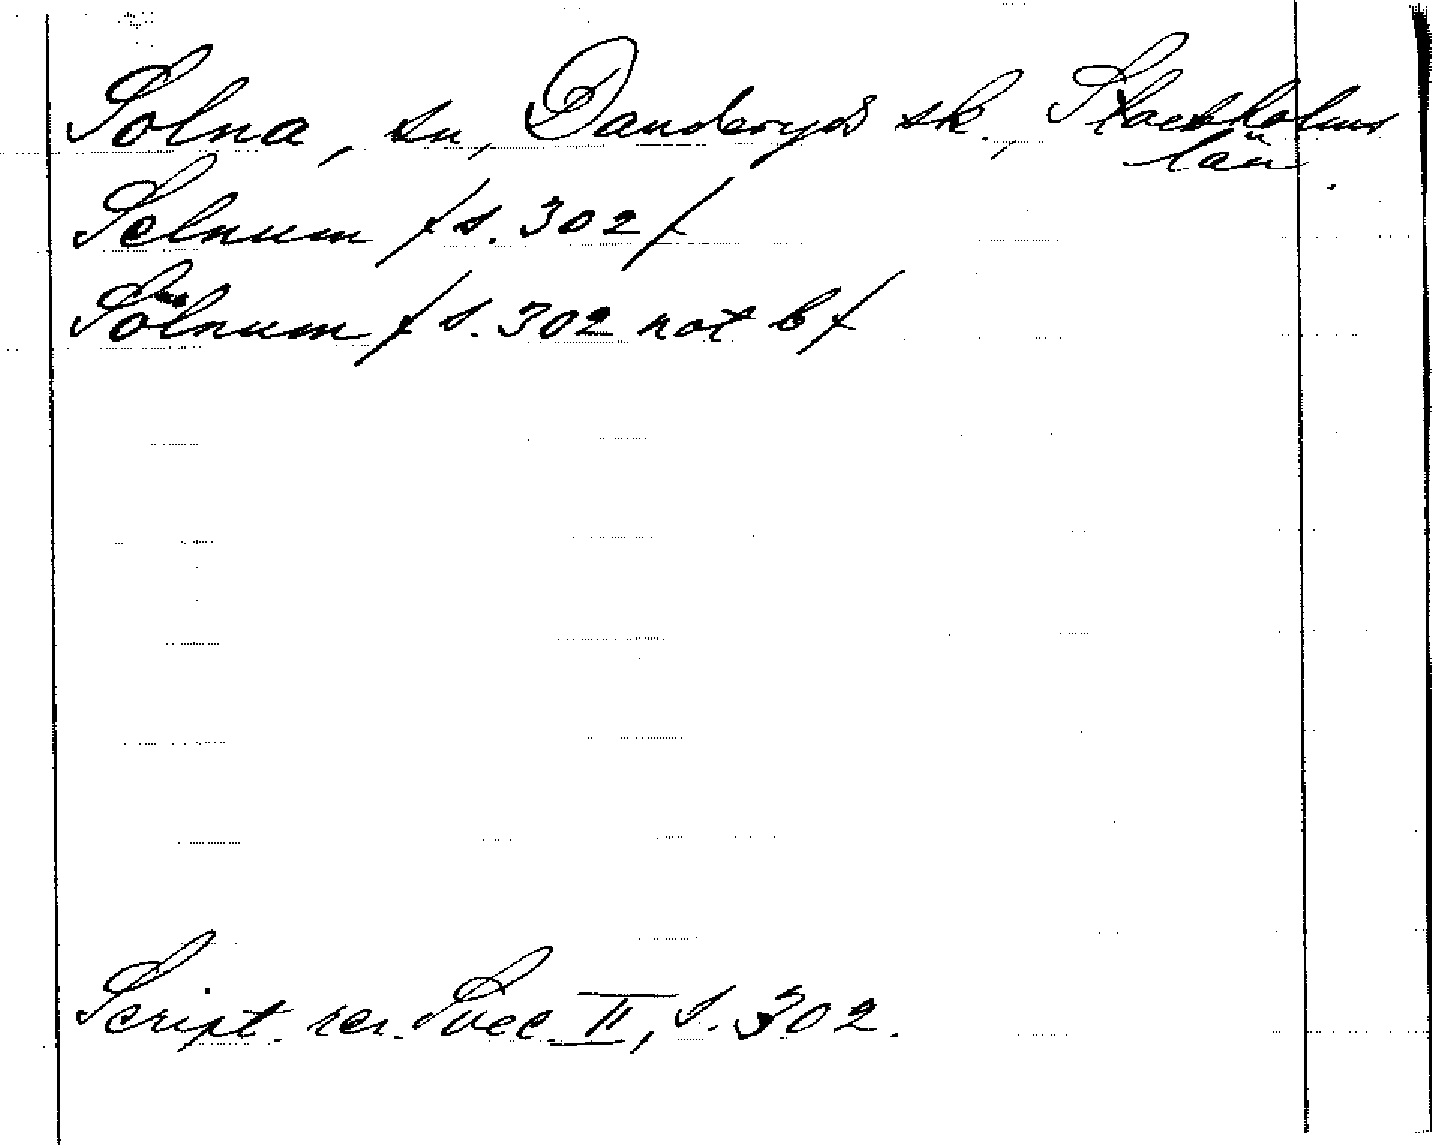 Solna, sn, Danderyds sk., Stockholms
län.
Selnum /s. 302/
Solnum /s. 302 not b/
Script. rer. Svec. II, s. 302.